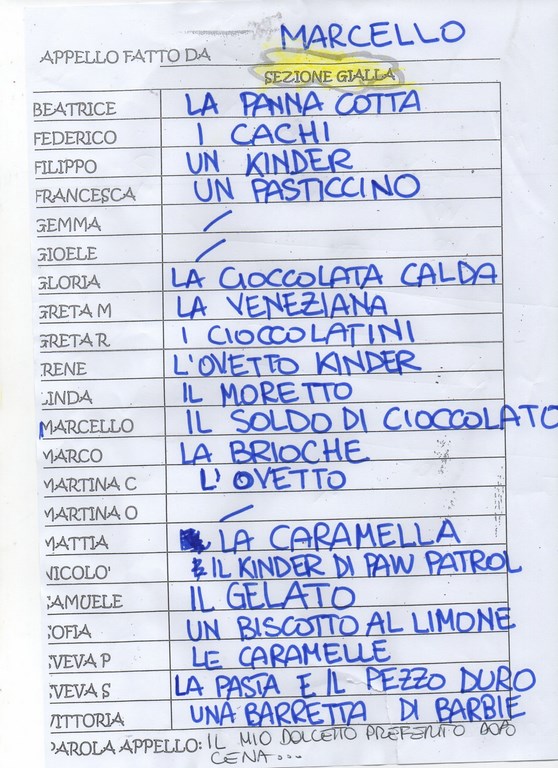 APPELLO FATTO DA MARCELLO
SEZIONE GIALLA
BEATRICE LA PANNA COTTA
FEDERICO I CACHI
FILIPPO UN KINDER
FRANCESCA UN PASTICCINO
GEMMA /
GIOELE /
GLORIA LA CIOCCOLATA CALDA
GRETA M LA VENEZIANA
GRETA R I CIOCCOLATINI
RENE L'OVETTO KINDER
LINDA IL MORETTO
MARCELLO IL SOLDO DI CIOCCOLATO
MARCO LA BRIOCHE
MARTINA C L'OVETTO
MARTINA O /
MATTIA LA CARAMELLA
NICOLO' IL KINDER DI PAW PATROL
SAMUELE IL GELATO
SOFIA UN BISCOTTO AL LIMONE
SVEVA P LE CARAMELLE
SVEVA S LA PASTA E IL PEZZO DURO
VITTORIA UNA BARRETTA DI BARBIE
PAROLA APPELLO: IL MIO DOLCETTO PREFERITO DOPO
CENA...